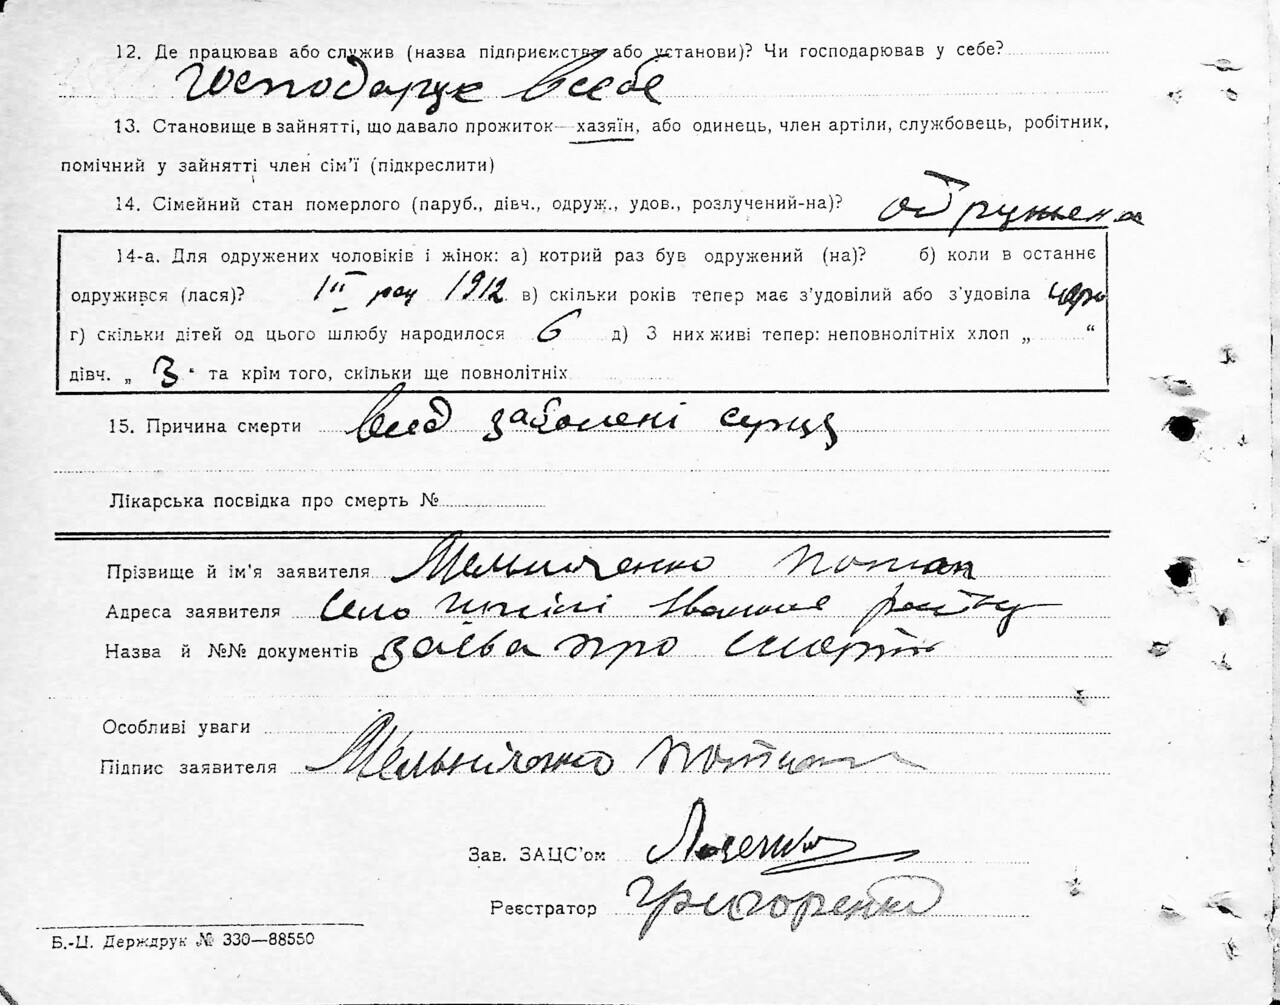 12. Де працював або служив (назва підприємства або установи)? Чи господарював у себе?
Господарує в себе
13. Становище в зайнятті, що давало прожиток—хазяїн, або одинець, член артіли, службовець, робітник,
помічний у зайнятті член сім’ї (підкреслити)
14. Сімейний стан померлого (паруб., дівч., одруж., удов., розлучений-на)? одружена
14-а. Для одружених чоловіків і жінок: а) котрий раз був одружений (на)? б) коли в останнє
одружився (лася)? 1 1912 в) скільки років тепер має з’удовілий або з’удовіла
г) скільки дітей од цього шлюбу народилося 6 д) З них живі тепер: неповнолітніх хлоп „ “
дівч. „ 3 “ та крім того, скільки ще повнолітніх
15. Причина смерти від заболені серця
Лікарська посвідка про смерть №
Прізвище й ім’я заявителя Мельниченко Потап
Адреса заявителя село
Назва й №№ документів заєва про смерть
Особливі уваги
Підпис заявителя Мельніченко Потап
Зав. ЗАЦС’ом
Реєстратор Григоренко
Б.-Ц. Держдрук № 330—88550